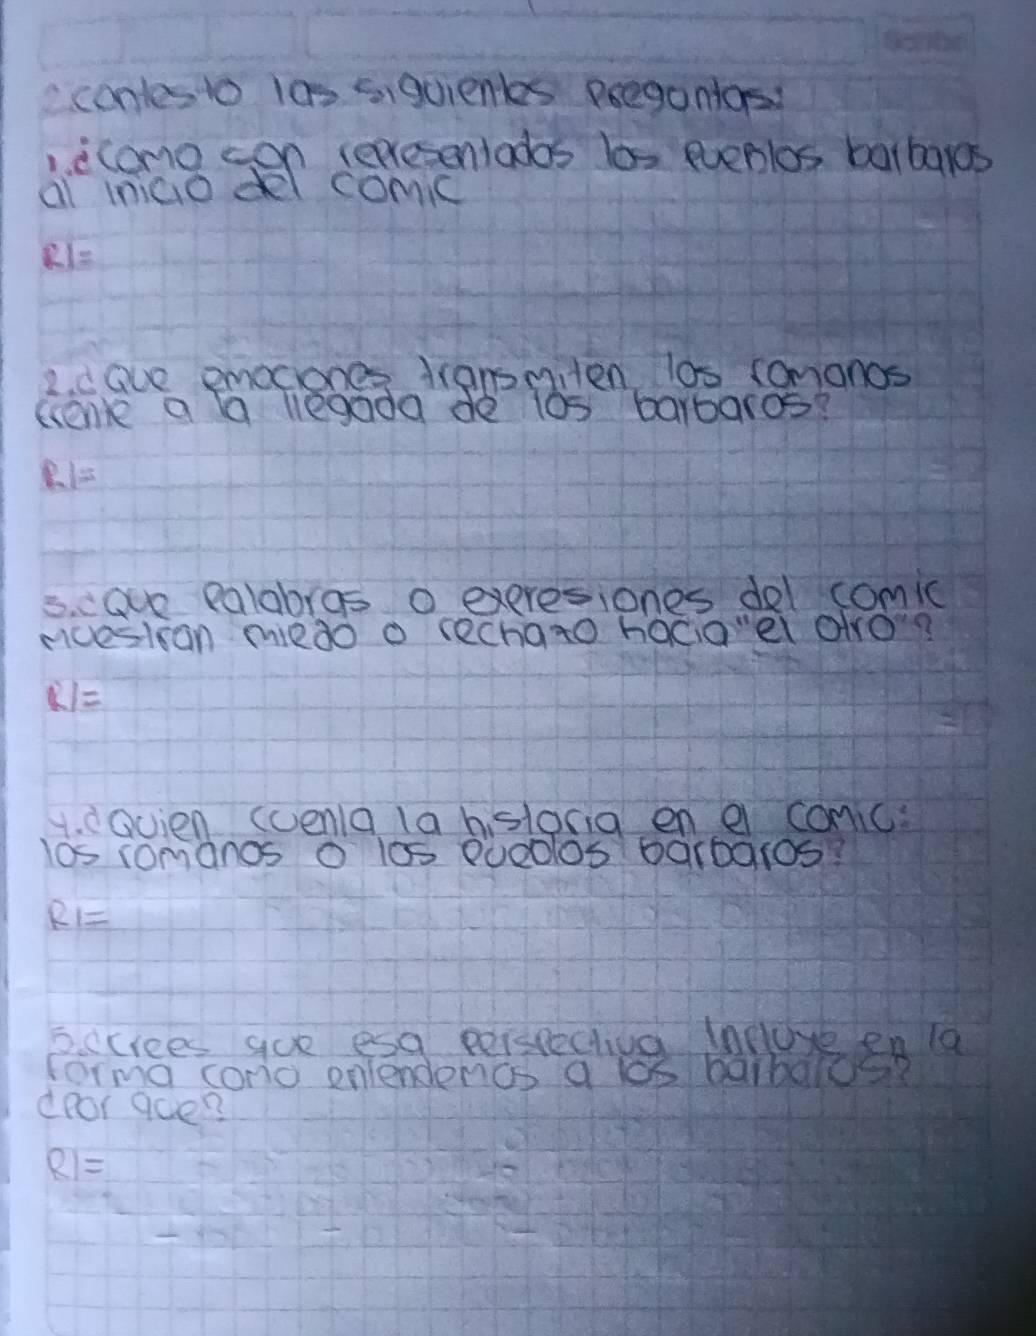 contesto las siguientes Preguntas:
1.¿como son representados los Pueblos barbaros
al inicio del comic
R1=
2.¿Que emociones transmiten los romanos
frente a la llegada de los barbaros?
R1=
3.¿Que Palabras o expresiones del comic
muestran miedo o rechazo hacia "el otro"?
R1=
4.¿Quien cuenta la historia en el comic:
los romanos o los pueblos barbaros?
R1=
5.¿crees que esa perspectiva Incluye en la
forma como entendemos a los barbaros?
¿Por que?
R1=